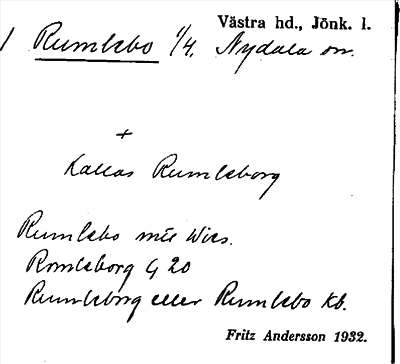 Västra hd., Jönk. l.
/ Rumlebo 1/4. Nydala sn.
+
Kallas Rumleborg
Rumlebo mte Wies.
Romleborg G 20
Rumleborg eller Rumlebo kb.
Fritz Andersson 1932.